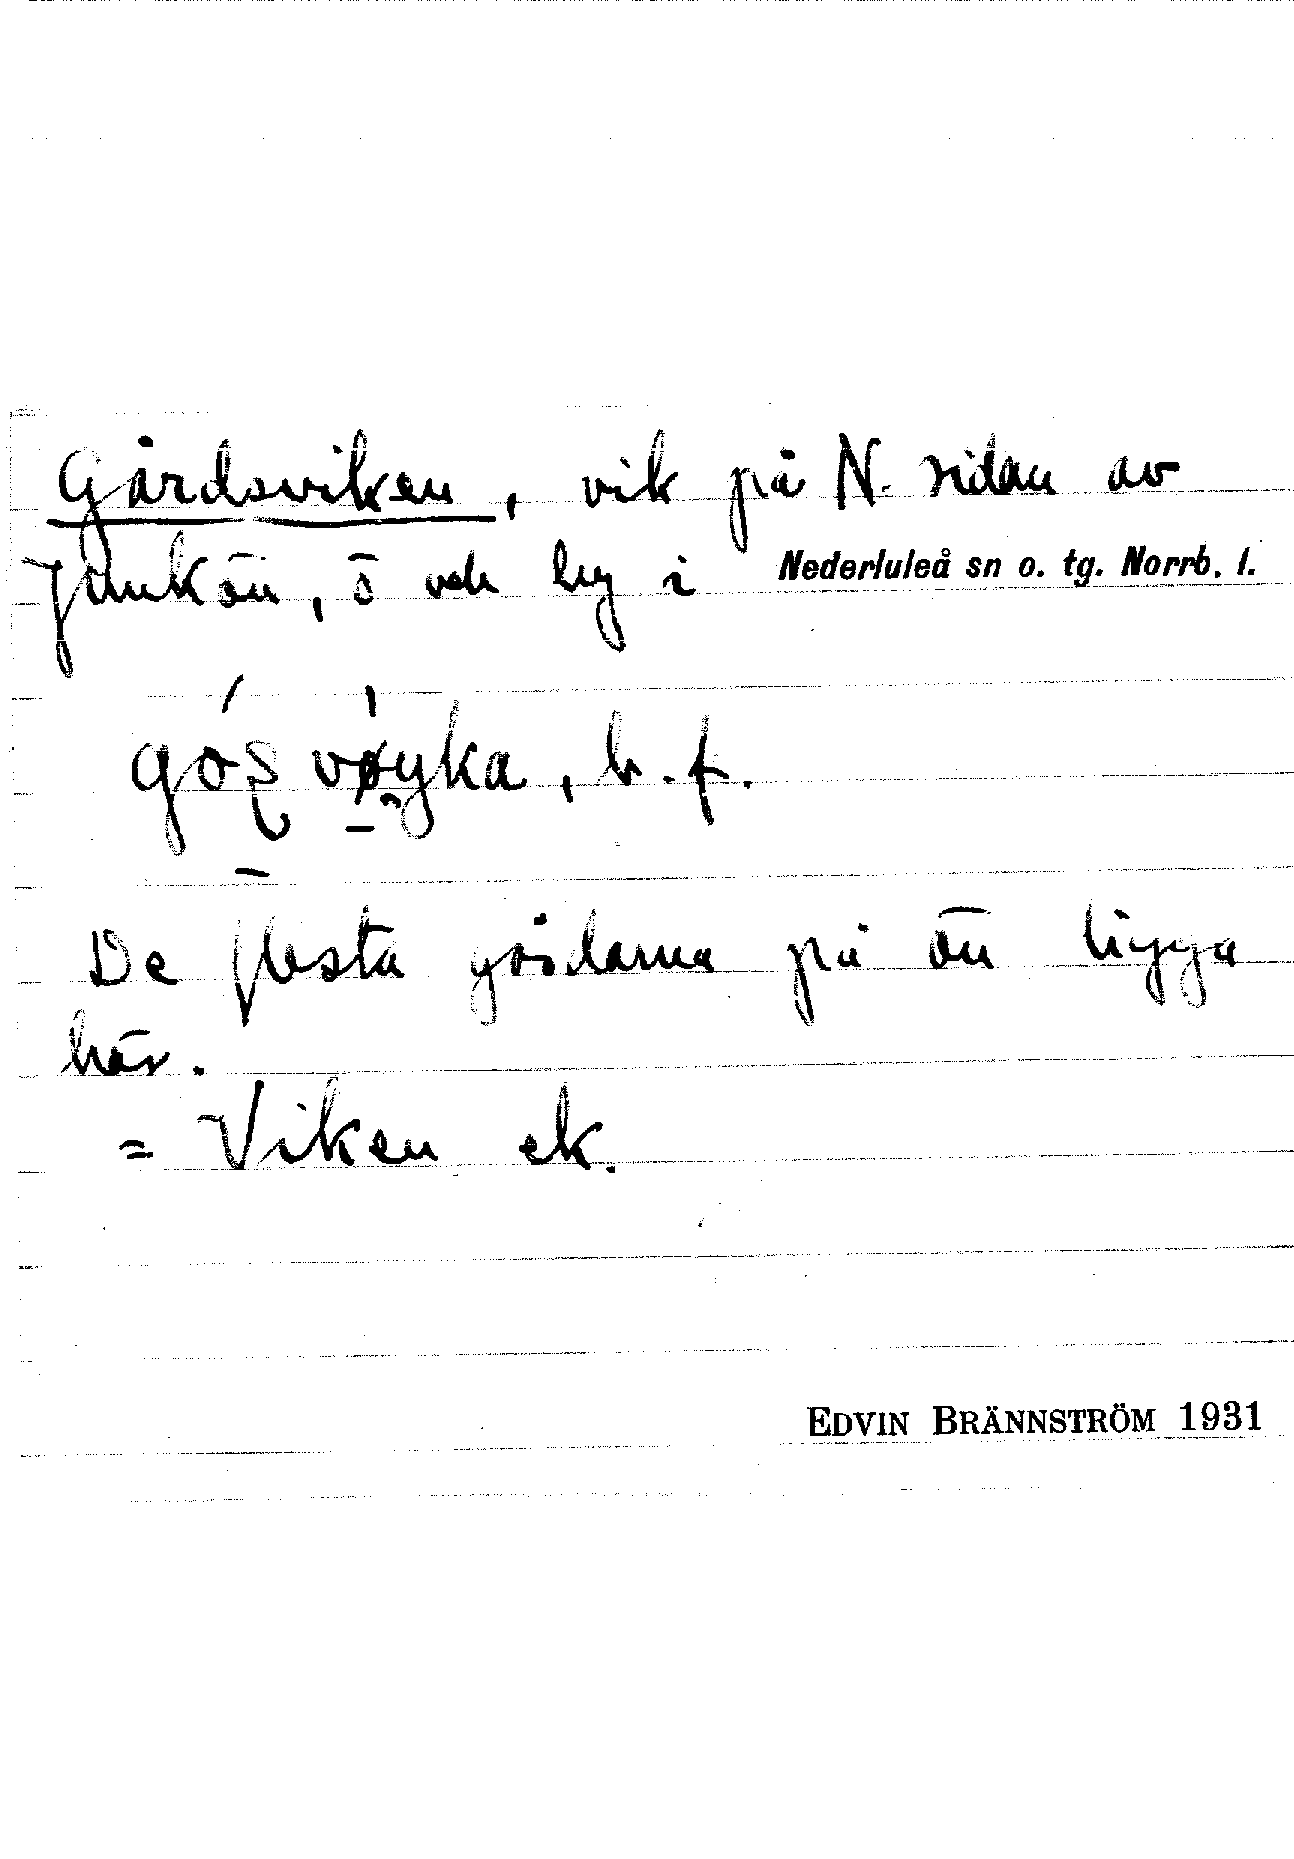 Gårdsviken, vik på N. sidan av
Junkön, ö och by i Nederluleå sn o. tg. Norrb. l.
b. f.
De flesta gårdarna på ön ligga
här.
= Viken ek.
EDVIN BRÄNNSTRÖM 1931